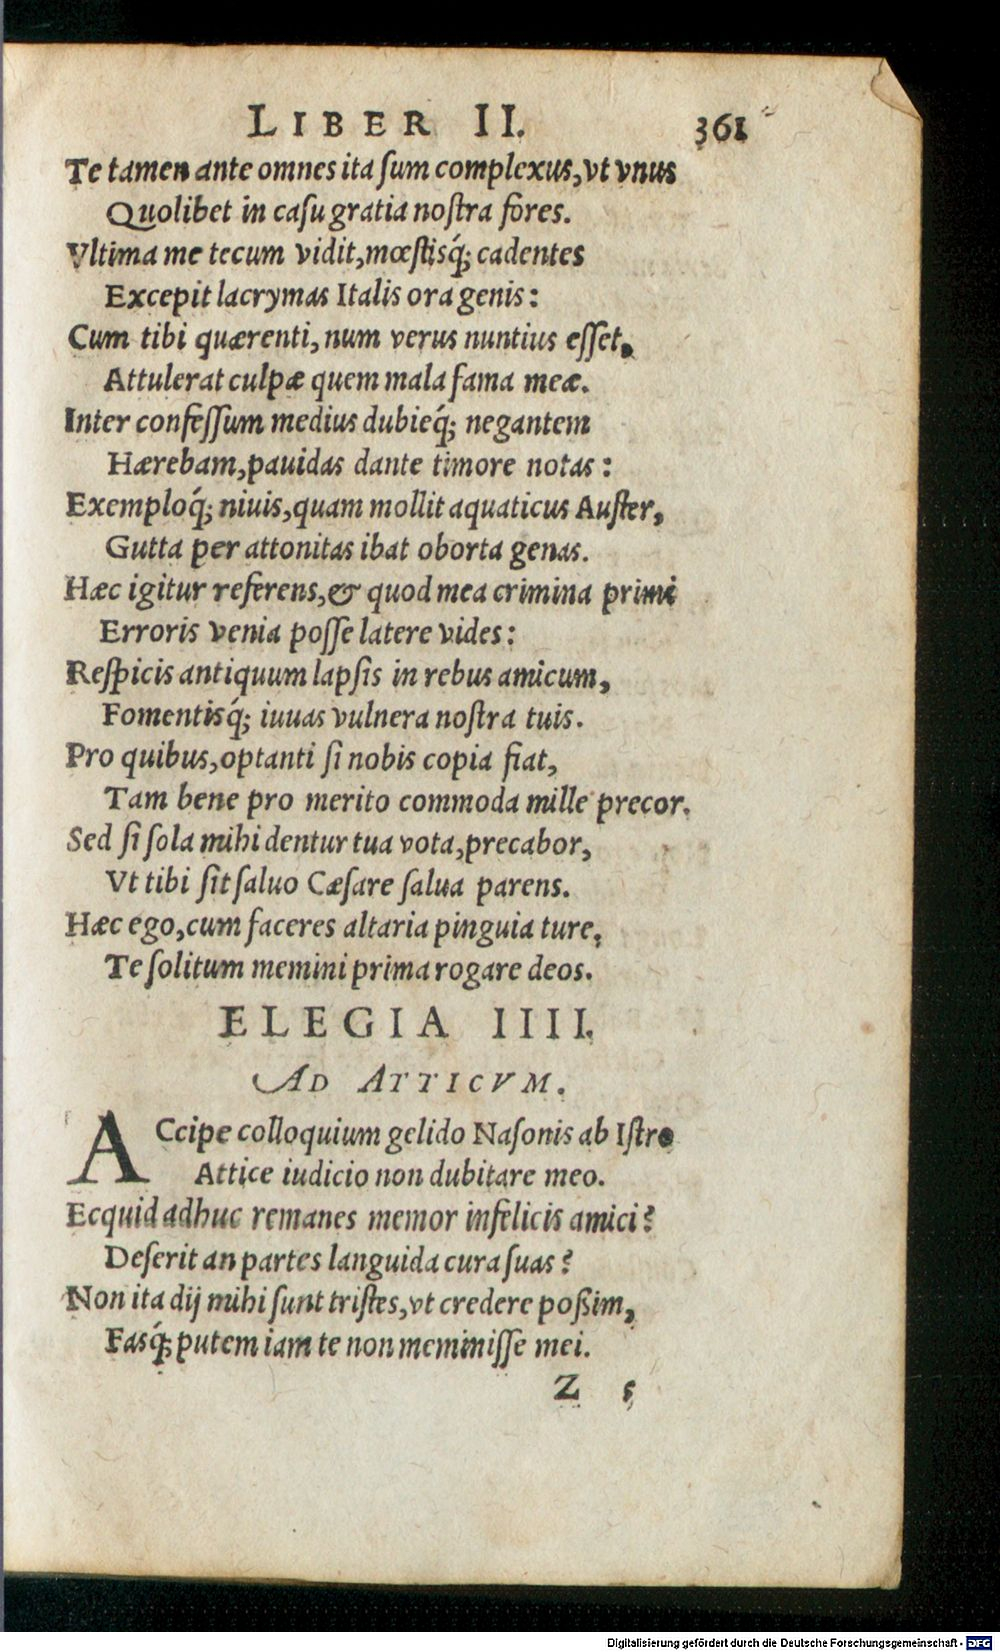 LIBER II. 361
Te tamen ante omnes ita ſum complexus, vt vnus
Quolibet in caſu gratia noſtra fores.
Vltima me tecum vidit, mœſtisq́; cadentes
Excepit lacrymas Italis ora genis:
Cum tibi quærenti, num verus nuntius eſſet,
Attulerat culpæ quem mala fama meæ.
Inter confeſſum medius dubieq́; negantem
Hærebam, pauidas dante timore notas:
Exemploq́; niuis, quam mollit aquaticus Auſter,
Gutta per attonitas ibat oborta genas.
Hæc igitur referens, & quod mea crimina primi
Erroris venia poſſe latere vides:
Reſpicis antiquum lapſis in rebus amicum,
Fomentisq́; iuuas vulnera noſtra tuis.
Pro quibus, optanti ſi nobis copia fiat,
Tam bene pro merito commoda mille precor.
Sed ſi ſola mihi dentur tua vota, precabor,
Vt tibi ſit ſaluo Cæſare ſalua parens.
Hæc ego, cum faceres altaria pinguia ture,
Te ſolitum memini prima rogare deos.
ELEGIA IIII.
AD ATTICVM.
ACcipe colloquium gelido Naſonis ab Iſtro
Attice iudicio non dubitare meo.
Ecquid adhuc remanes memor infelicis amici?
Deſerit an partes languida cura ſuas?
Non ita dij mihi ſunt triſtes, vt credere poßim,
Fasq́; putem iam te non meminiſſe mei.
Z 5
Digitalisierung gefördert durch die Deutsche Forschungsgemeinschaft - DFG